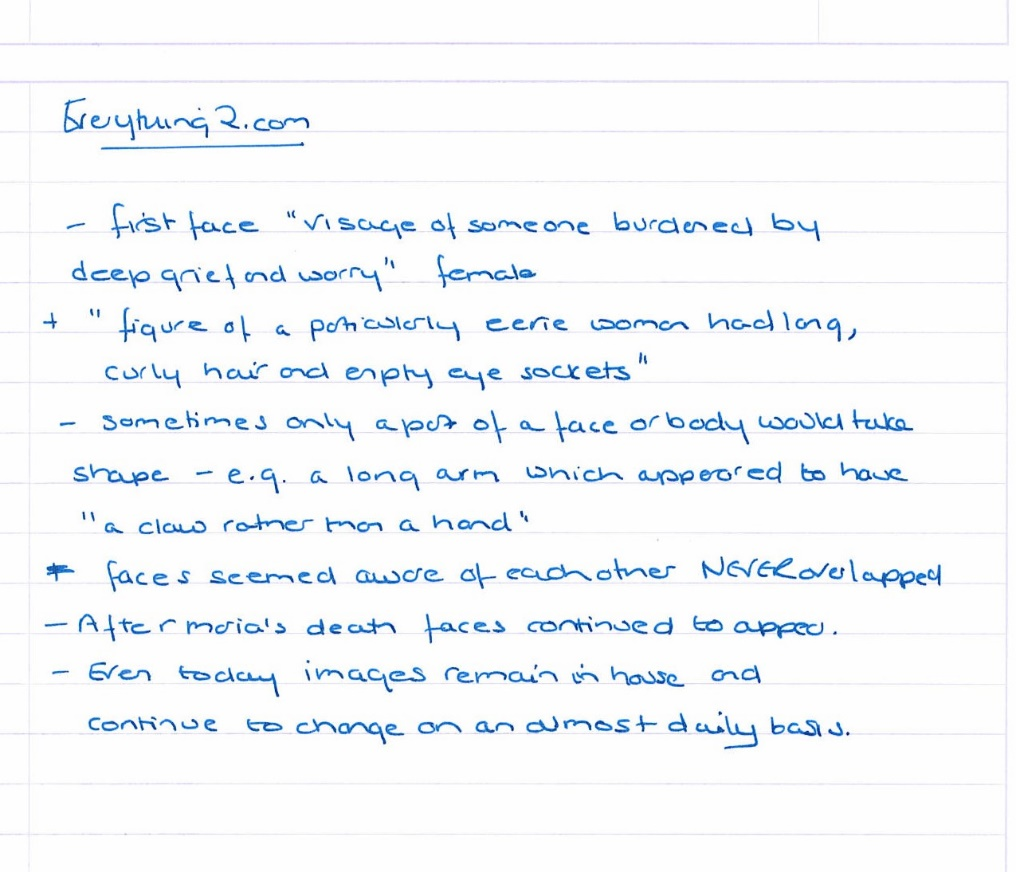 Everything2.com
- first face "visage of someone burdened by
deep grief and worry" female
+ "figure of a particularly eerie woman had long,
curly hair and empty eye sockets"
- sometimes only a part of a face or body would take
shape - e.g. a long arm which appeared to have
"a claw rather than a hand"
* faces seemed aware of each other NEVER overlapped
- After maria's death faces continued to appear.
- Even today images remain in house and
continue to change on an almost daily basis.